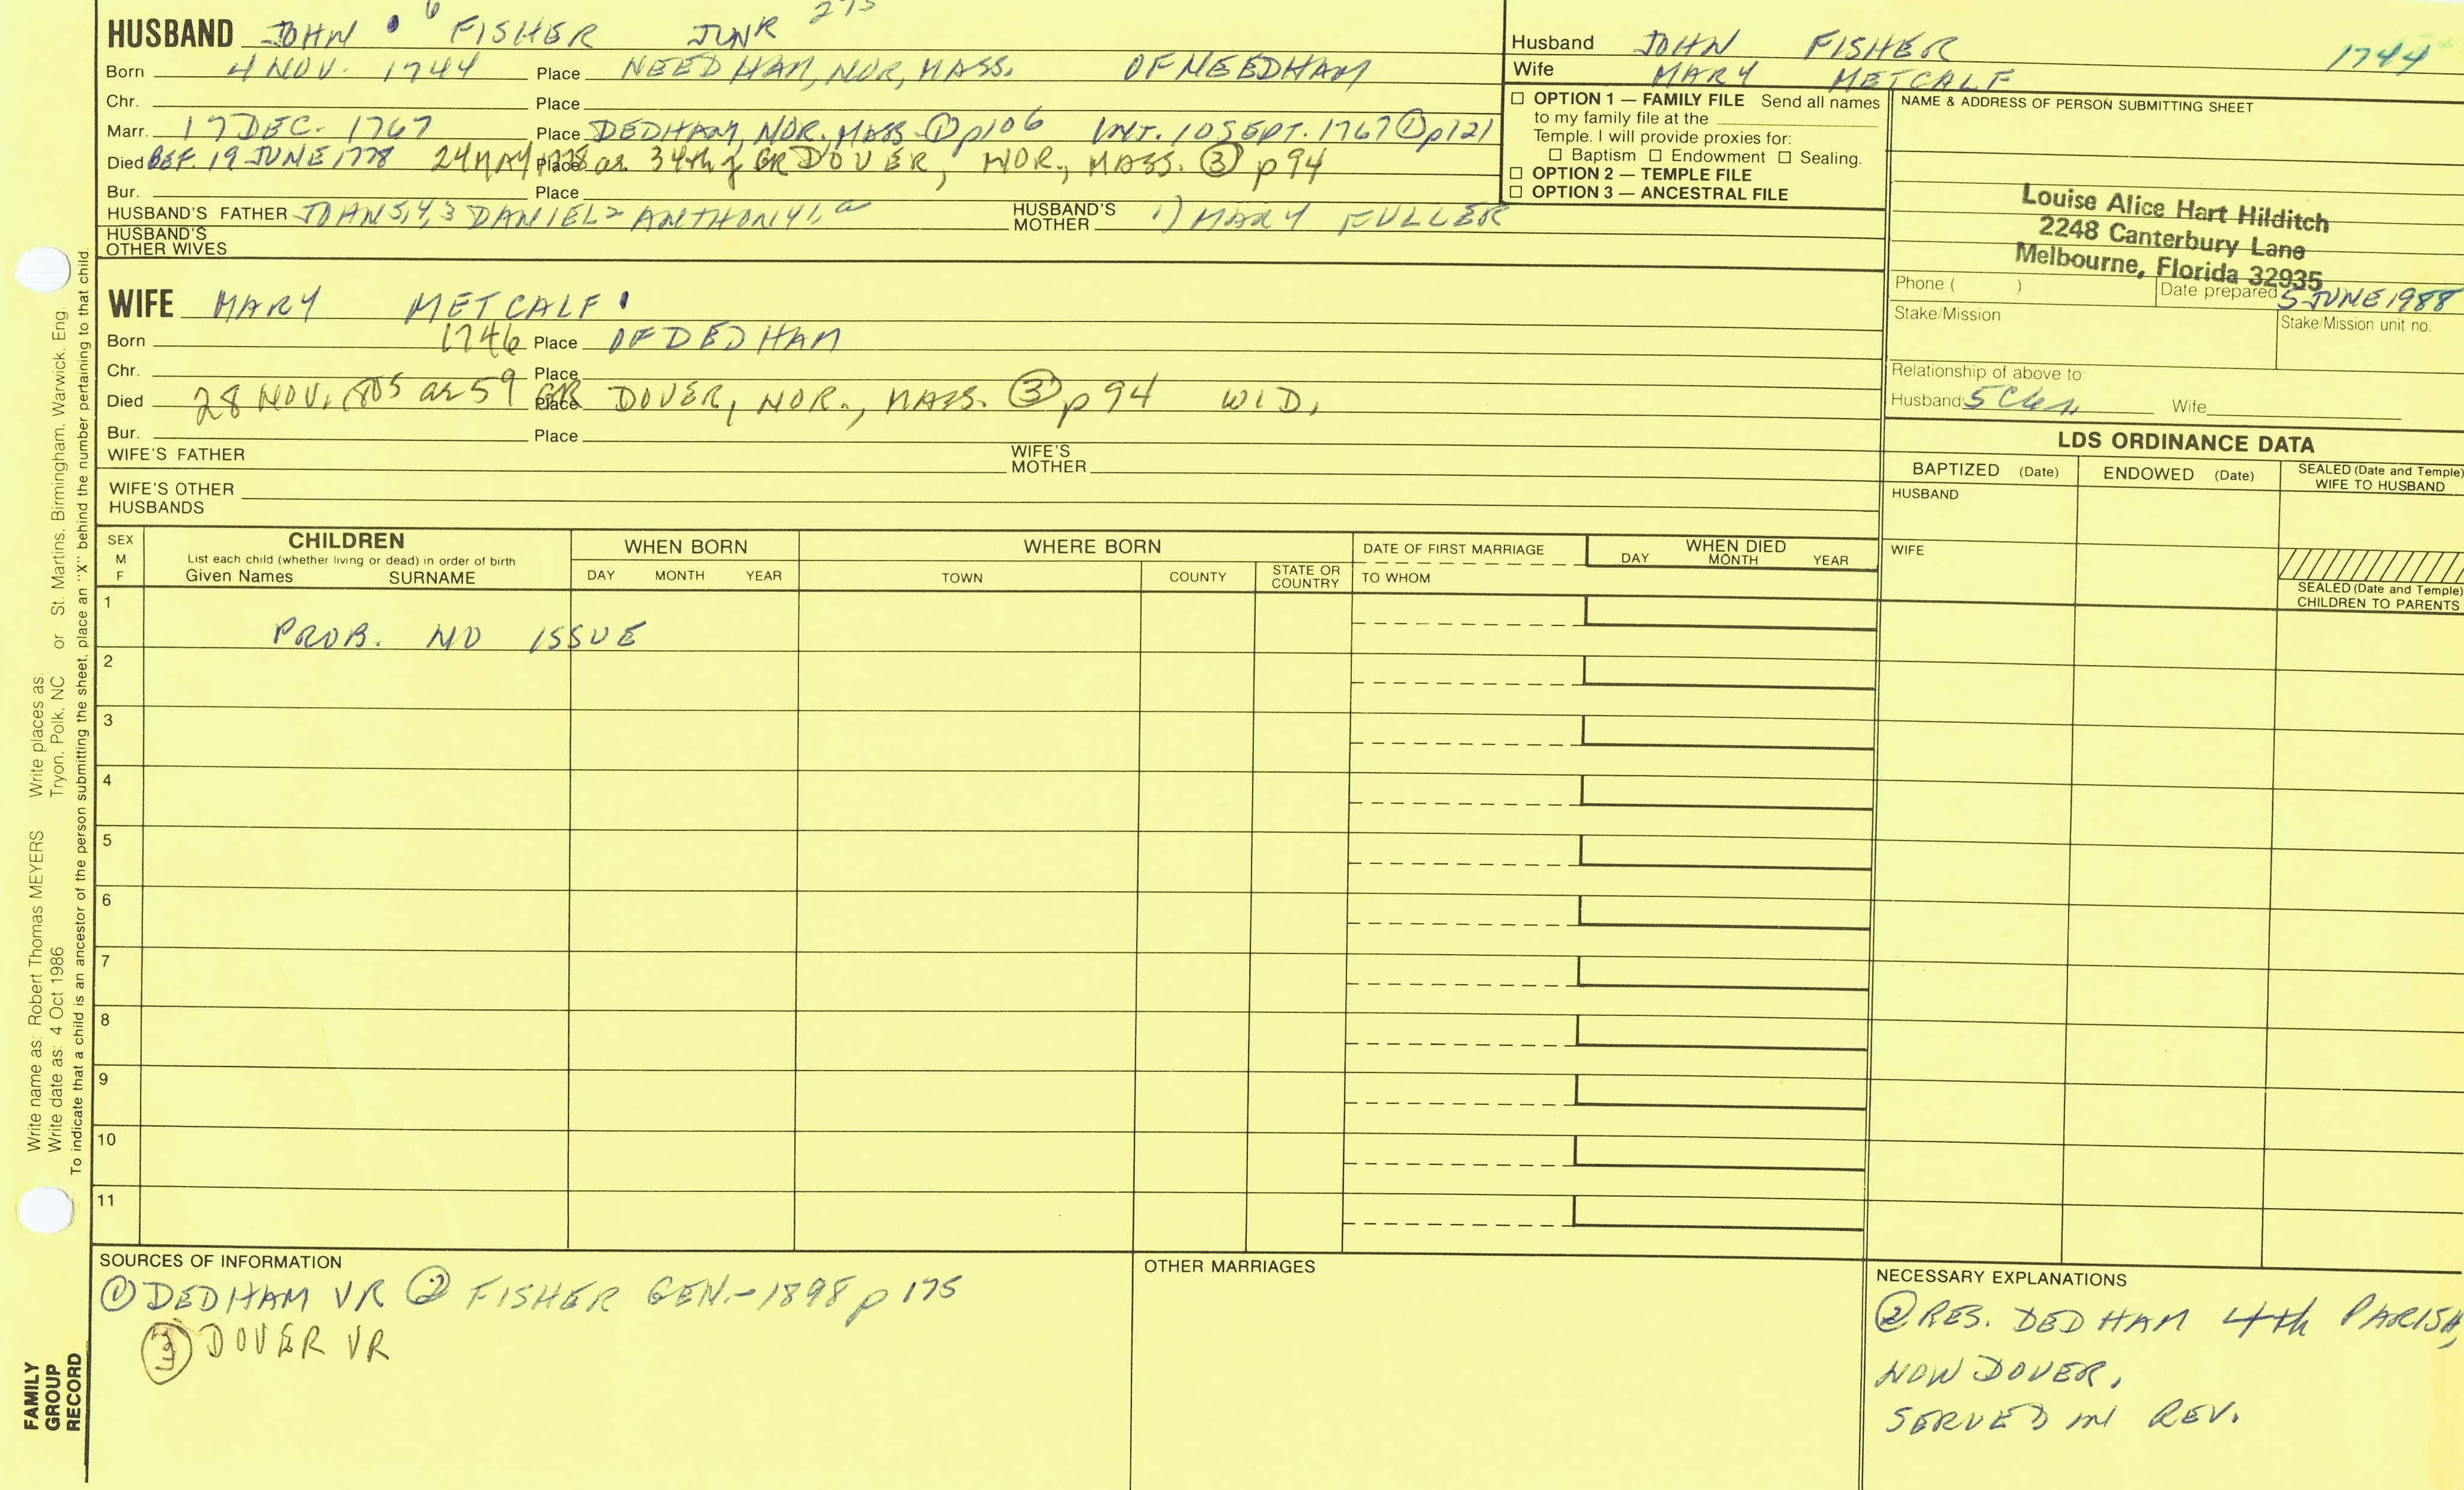 HUSBAND JOHN 6 FISHER JUNR
Born 4 NOV. 1744 Place NEEDHAM, NOR, MASS. OF NEEDHAM
Chr. Place
Marr. 17 DEC. 1767 Place DEDHAM, NOR. MASS. ① p106 INT. 10 SEPT. 1767 ① p121
Died BEF. 19 JUNE 1778 24 MAY 1778 ae 34th y GR Place DOVER, NOR., MASS. ③ p94
Bur. Place
HUSBAND'S FATHER JOHN 5,4,3 DANIEL 2 ANTHONY 1, a HUSBAND'S MOTHER 1) MARY FULLER
HUSBAND'S OTHER WIVES
Husband JOHN FISHER 1744
Wife MARY METCALF
☐ OPTION 1 — FAMILY FILE Send all names
to my family file at the
Temple. I will provide proxies for:
☐ Baptism ☐ Endowment ☐ Sealing.
☐ OPTION 2 — TEMPLE FILE
☐ OPTION 3 — ANCESTRAL FILE
NAME & ADDRESS OF PERSON SUBMITTING SHEET
Louise Alice Hart Hilditch
2248 Canterbury Lane
Melbourne, Florida 32935
Phone ( ) Date prepared 5 JUNE 1988
Stake/Mission Stake/Mission unit no.
Relationship of above to
Husband Wife
WIFE MARY METCALF
Born 1746 Place OF DEDHAM
Chr. Place
Died 28 NOV. 1805 ae 59 GR Place DOVER, NOR., MASS. ③ p94 WID,
Bur. Place
WIFE'S FATHER WIFE'S MOTHER
WIFE'S OTHER HUSBANDS
LDS ORDINANCE DATA
BAPTIZED (Date) ENDOWED (Date) SEALED (Date and Temple) WIFE TO HUSBAND
HUSBAND
WIFE
SEALED (Date and Temple) CHILDREN TO PARENTS
SEX M F
CHILDREN
List each child (whether living or dead) in order of birth
Given Names SURNAME
WHEN BORN
DAY MONTH YEAR
WHERE BORN
TOWN COUNTY STATE OR COUNTRY
DATE OF FIRST MARRIAGE
TO WHOM
WHEN DIED
DAY MONTH YEAR
1 PROB. NO ISSUE
2
3
4
5
6
7
8
9
10
11
SOURCES OF INFORMATION
① DEDHAM VR ② FISHER GEN.-1898 p 175
③ DOVER VR
OTHER MARRIAGES
NECESSARY EXPLANATIONS
② RES. DEDHAM 4th PARISH,
NOW DOVER,
SERVED IN REV.
Write name as: Robert Thomas MEYERS Write places as:
Write date as: 4 Oct 1986 Tryon, Polk, NC or St. Martins, Birmingham, Warwick, Eng.
To indicate that a child is an ancestor of the person submitting the sheet, place an "X" behind the number pertaining to that child.
FAMILY
GROUP
RECORD